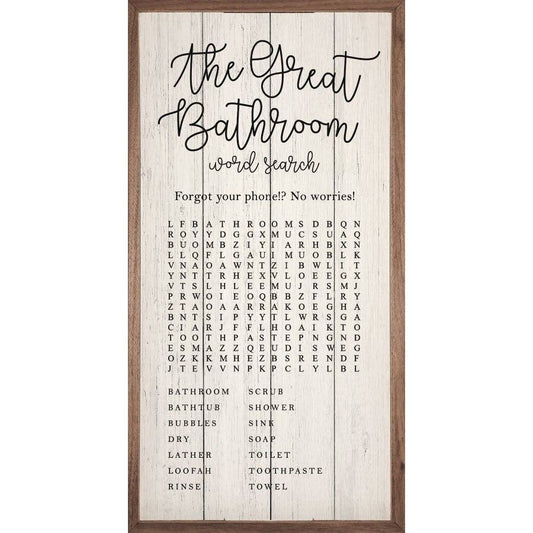 the Great
Bathroom
word search
Forgot your phone!? No worries!
L F B A T H R O O M S D B Q N
R O Y Y D G G X M U C S U A Q
B U O M B Z I Y I A R H B X N
L L Q F L G A U I M U O B L K
V N A O A W N T Z I B W L I T
Y N T T R H E X V L O E E G X
V T S L H L E E M U J R S M J
P R W O I E O Q B B Z F L R Y
Z T A O A A R R A K O E G H A
B N T S I P Y Y T L W R S G A
C I A R J F F L H O A I K T O
T O O T H P A S T E P N G N D
E S M A Z Z Q E U D I S W E G
O Z K K M H E Z B S R E N D F
J T E V V N P K P C L Y L B L
BATHROOM SCRUB
BATHTUB SHOWER
BUBBLES SINK
DRY SOAP
LATHER TOILET
LOOFAH TOOTHPASTE
RINSE TOWEL